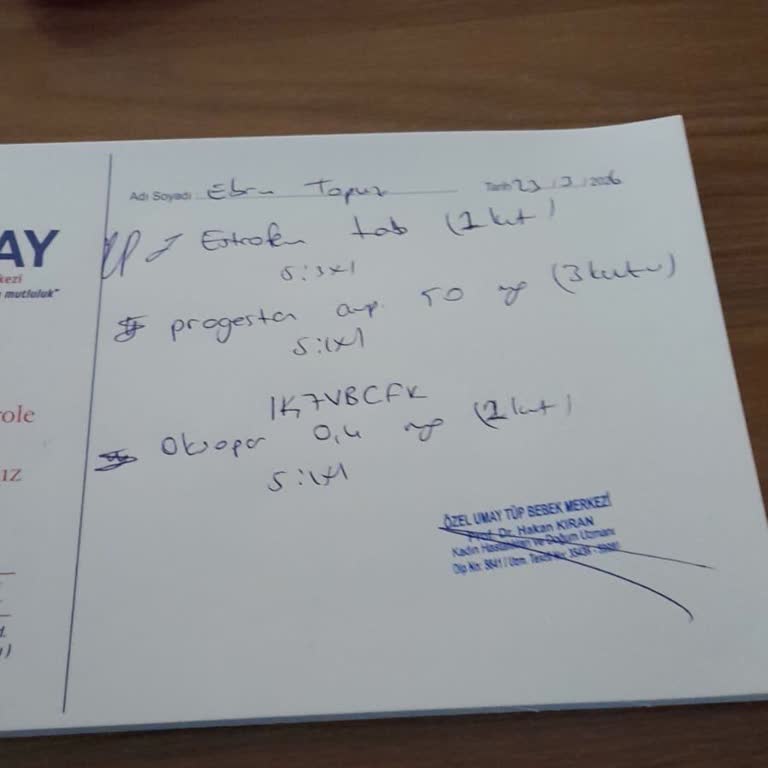 AY
kezi
mutluluk"
Adı Soyadı Ebru Topuz Tarih 23 / 3 / 2026
Estrofem tab (1 kut)
S: 3x1
progestan amp. 50 mg (3 kutu)
S: 1x1
1K7VBCFK
Oksapar 0,4 mg (2 kut)
S: 1x1
ole
ız
ÖZEL UMAY TÜP BEBEK MERKEZİ
Prof. Dr. Hakan KIRAN
Kadın Hastalıkları ve Doğum Uzmanı